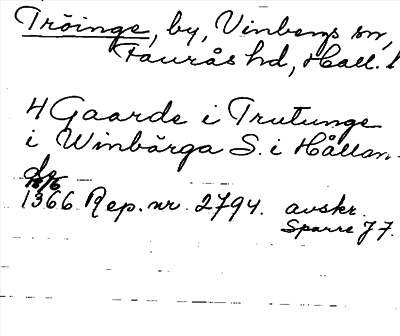 Tröinge, by, Vinbergs sn,
Faurås hd, Hall. l
4 Gaarde i Trutunge
i Winbärga S. i Hållan.
1366 Rep. nr. 2794. avskr.
Sparre J 7.